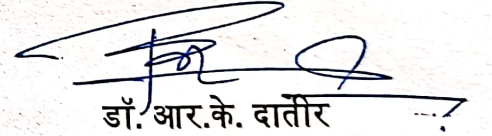 डॉ. आर.के. दातीर